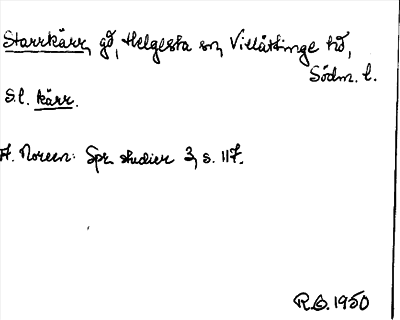 Starrkärr, gd, Helgesta sn, Villåttinge hd,
Södm. l.
S.l. kärr.
A. Noreen: Spr. studier 3, s. 117.
R.O. 1950